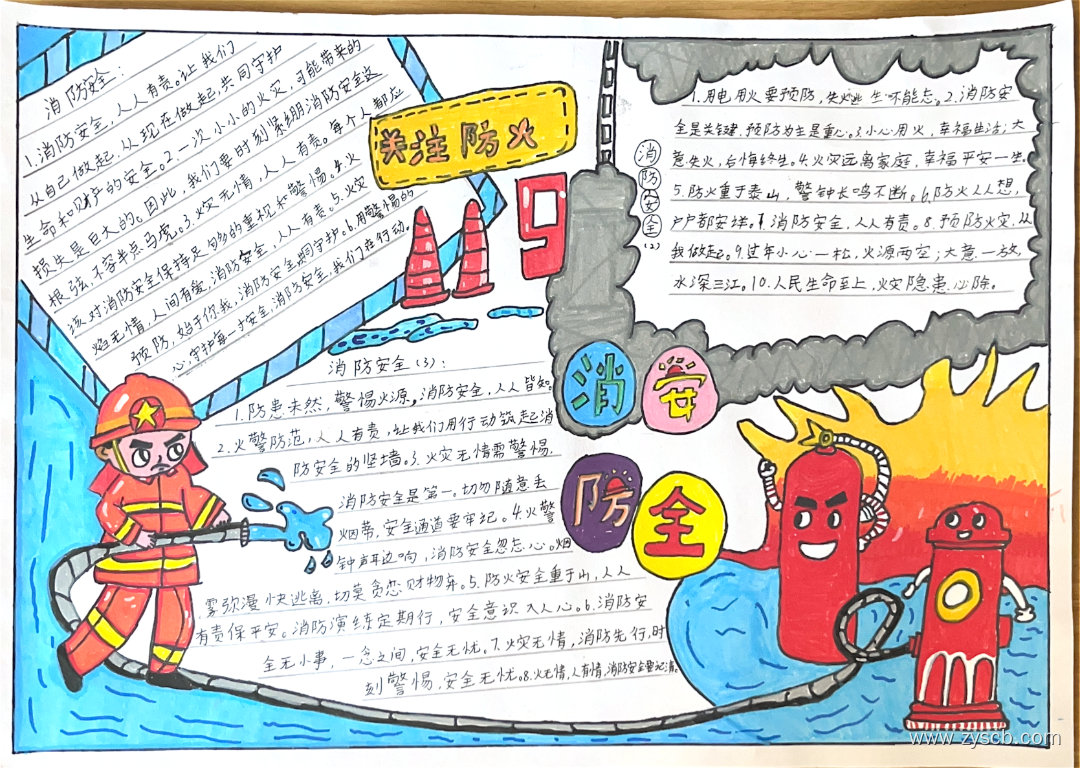 消防安全:
1.消防安全,人人有责。让我们
从自己做起,从现在做起,共同守护
生命和财产的安全。2.一次小小的火灾,可能带来的
损失是巨大的。因此,我们要时刻紧绷消防安全这
根弦,不容半点马虎。3.火灾无情,人人有责。每个人都应
该对消防安全保持足够的重视和警惕。4.火
焰无情,人间有爱,消防安全,人人有责。5.火灾
预防,始于你我,消防安全共同守护。6.用警惕的
心,守护每一寸安全,消防安全,我们在行动。
关注防火
119
消防安全(2)
1.用电用火要预防,失火逃生不能忘。2.消防安
全是关键,预防为主是重心。3.小心用火,幸福生活;大
意失火,后悔终生。4.火灾远离家庭,幸福平安一生。
5.防火重于泰山,警钟长鸣不断。6.防火人人想,
户户都安祥。7.消防安全,人人有责。8.预防火灾,从
我做起。9.过年小心一松,火源两空;大意一放,
水深三江。10.人民生命至上,火灾隐患必除。
消防安全(3):
1.防患未然,警惕火源,消防安全,人人皆知。
2.火警防范,人人有责,让我们用行动筑起消
防安全的坚墙。3.火灾无情需警惕,
消防安全是第一。切勿随意丢
烟蒂,安全通道要牢记。4.火警
钟声耳边响,消防安全忽忘心。烟
雾弥漫快逃离,切莫贪恋财物奔。5.防火安全重于山,人人
有责保平安。消防演练定期行,安全意识入人心。6.消防安
全无小事,一念之间,安全无忧。7.火灾无情,消防先行,时
刻警惕,安全无忧。8.火无情,人有情,消防安全要记清。
消
安
防
全
www.zyscb.com